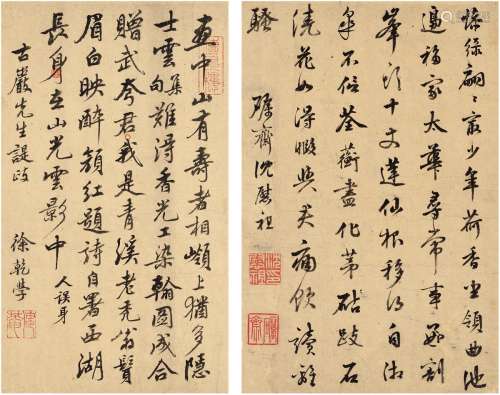 翩翩最少年荷香坐領曲池
邊移家太華尋常事割
峯頭十丈蓮仙根移得自湘
皋不信荃蘅盡化茅跂石
澆花如得暇與君痛飲讀離
騷
礪齋沈慰祖
畫中山有壽者相嶺上猶多隱
士雲集句難得香光工染翰圖成合
贈武夸君我是青溪老禿翁鬢
眉白映醉顏紅題詩自署西湖
長身在山光雲影中 人誤身
古巖先生諟政
徐乾學